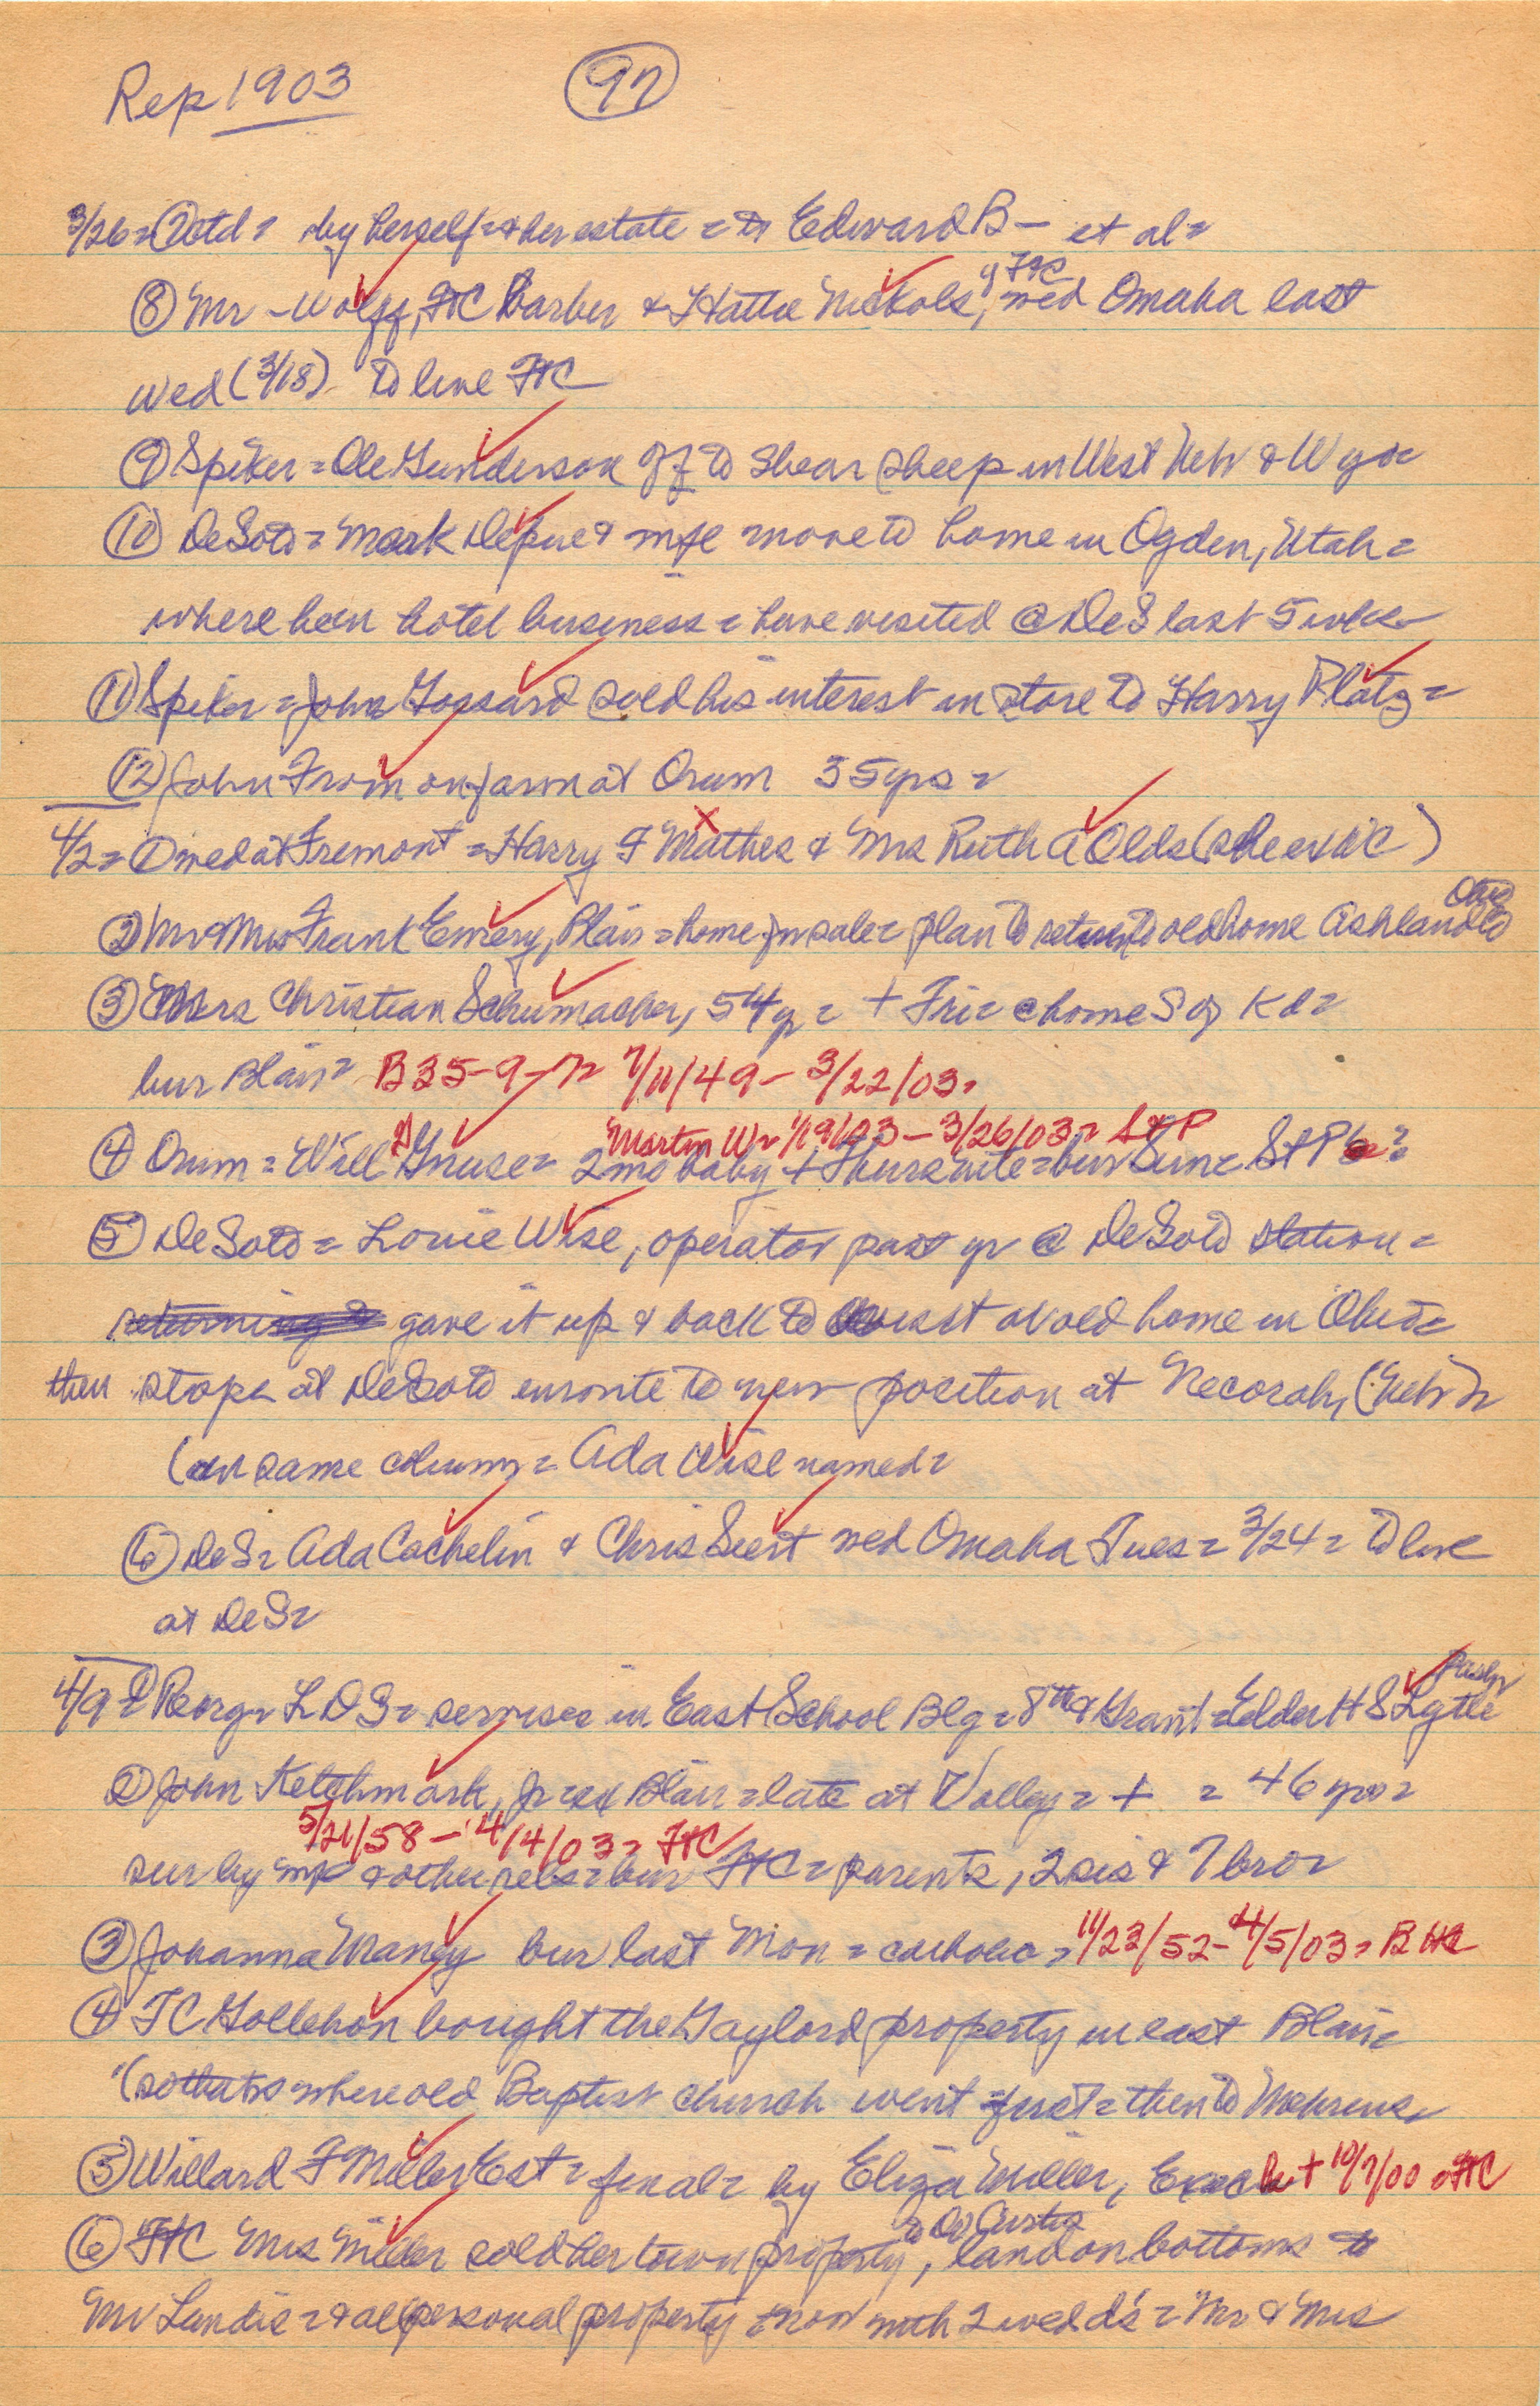 Rep 1903 97
3/26 = by herself = & her estate = Edward B - et al =
⑧ Mr - Wolff, FtC Barber & Hattie Nickols, of FtC, wed Omaha last
wed (3/18). To live FtC
⑨ Spiker = Ole Gunderson off to shear sheep in West Neb & Wyo =
⑩ DeSoto = Mark Depue & wife move to home in Ogden, Utah =
where been hotel business = have visited @ DeS last 5 wks
⑪ Spiker = John Gossard sold his interest in store to Harry Platz =
⑫ John From on farm at Orum 35 yrs =
4/2 = ① wed at Fremont = Harry F Mathes & Mrs Ruth A Olds (she ex WC)
② Mr & Mrs Frank Emery, Blair = home for sale = plan to return to old home Ashland
③ Mrs Christian Schumacher, 54 y = + Fri = @ home S of Kd =
bur Blair = B35-9-7 = 7/11/49 - 3/22/03 =
Martin W = 1/19/03 - 3/26/03 = StP
④ Orum = Will Gnuse = 2 mo baby + Thurs nite = bur Sun = St P
⑤ DeSoto = Louie Wise, operator past yr @ DeSoto station =
gave it up & back to visit at old home in Ohio =
then stops at DeSoto enroute to new position at Necorah, (Neb) =
(in same column = Ada Wise named =
⑥ DeS = Ada Cachelin & Chris Seert wed Omaha Tues = 3/24 = To live
at DeS =
4/9 = ① Reorg = L D S = services in East School Blg = 8th & Grant = Elder H S Lytle
② John Ketchmark, Jr ex Blair = late at Valley = + = 46 yrs =
5/21/58 - 4/4/03 = FtC
sur by wife & other rels = bur FtC = parents, 2 sis & 7 bro =
③ Johanna Maney bur last Mon = catholic = 11/23/52 - 4/5/03 = B
④ T C Gollehon bought the Gaylord property in east Blair =
(so that is where old Baptist church went first = then to Mehrens
⑤ Willard F Miller Est = final = by Eliza Miller, Exec + 10/7/00 = FtC
to Dr Curtis
⑥ FtC Mrs Miller sold her town property, land on bottoms to
Mr Landis = & all personal property = now with 2 wed d's = Mr & Mrs